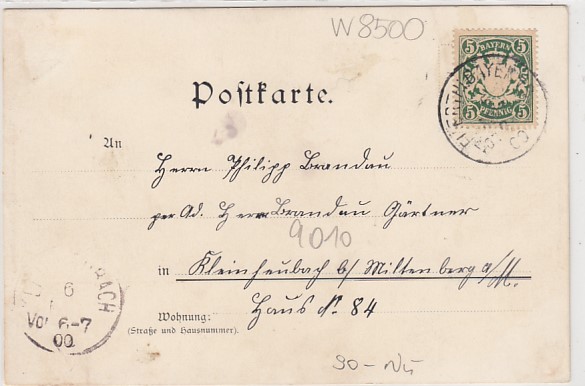 W 8500
5 BAYERN 5
5 PFENNIG 5
Postkarte.
An
Herrn Philipp Brandau
per Ad. Herrn Brandau Gärtner
9010
in Kleinheubach b/ Miltenberg a/M.
Haus No. 84
Wohnung:
(Straße und Hausnummer).
BACH
6
Vor 6-7
00
90-Nü